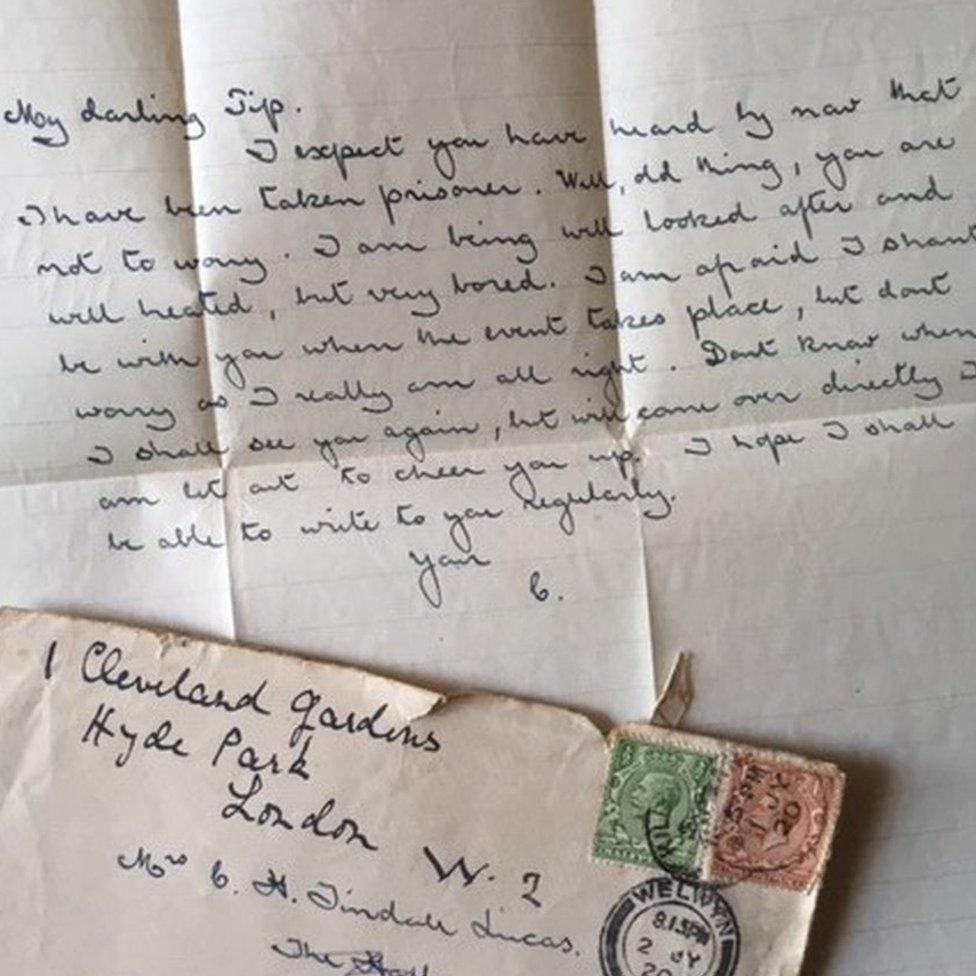 My darling Tip.
I expect you have heard by now that
I have been taken prisoner. Well, old thing, you are
not to worry. I am being well looked after and
well heated, but very bored. I am afraid I shant
be with you when the event takes place, but dont
worry as I really am all right. Dont know when
I shall see you again, but will come over directly I
am let out to cheer you up. I hope I shall
be able to write to you regularly.
Your
C.
1 Cleveland Gardens
Hyde Park
London
W. 2
Mrs C. H. Tindall Lucas.
The Hall
1 JY
20
WELWYN
8.15PM
2 JY
20